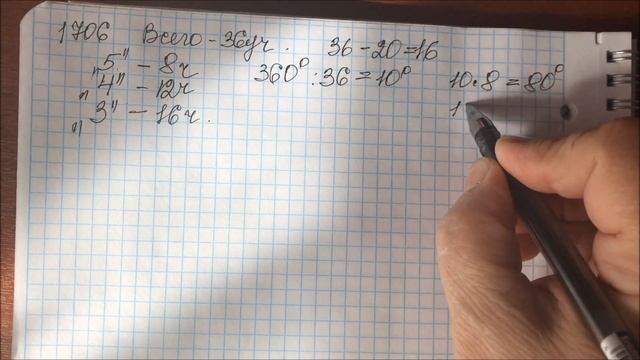 1706 Всего - 36уч. 36 - 20 = 16
"5" - 8ч 360° : 36 = 10° 10·8 = 80°
"4" - 12ч 1
"3" - 16ч.